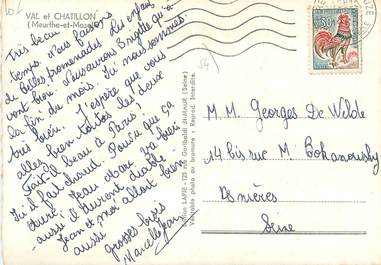 VAL et CHATILLON
(Meurthe-et-Moselle)
Très beau
temps. Nous faisons
de belles promenades. Les enfants
vont bien. Nous aurons Brigitte qu'à
la fin du mois. Ici nous sommes
très bien. J'espère que vous
allez bien toutes les deux
Fait-il beau à Paris
Ici il fait chaud. Pourvu que ça
dure!
aussi
Jean et moi allons bien
aussi
grosses bises
Marcelle Jean
Edition LAPIE - 125 rue Garibaldi St-MAUR (Seine)
Véritable photo au bromure - Reprod. Interdite.
0,30
M. M. Georges De Wilde
14 bis rue M. Bokanowsky
Asnières
Seine